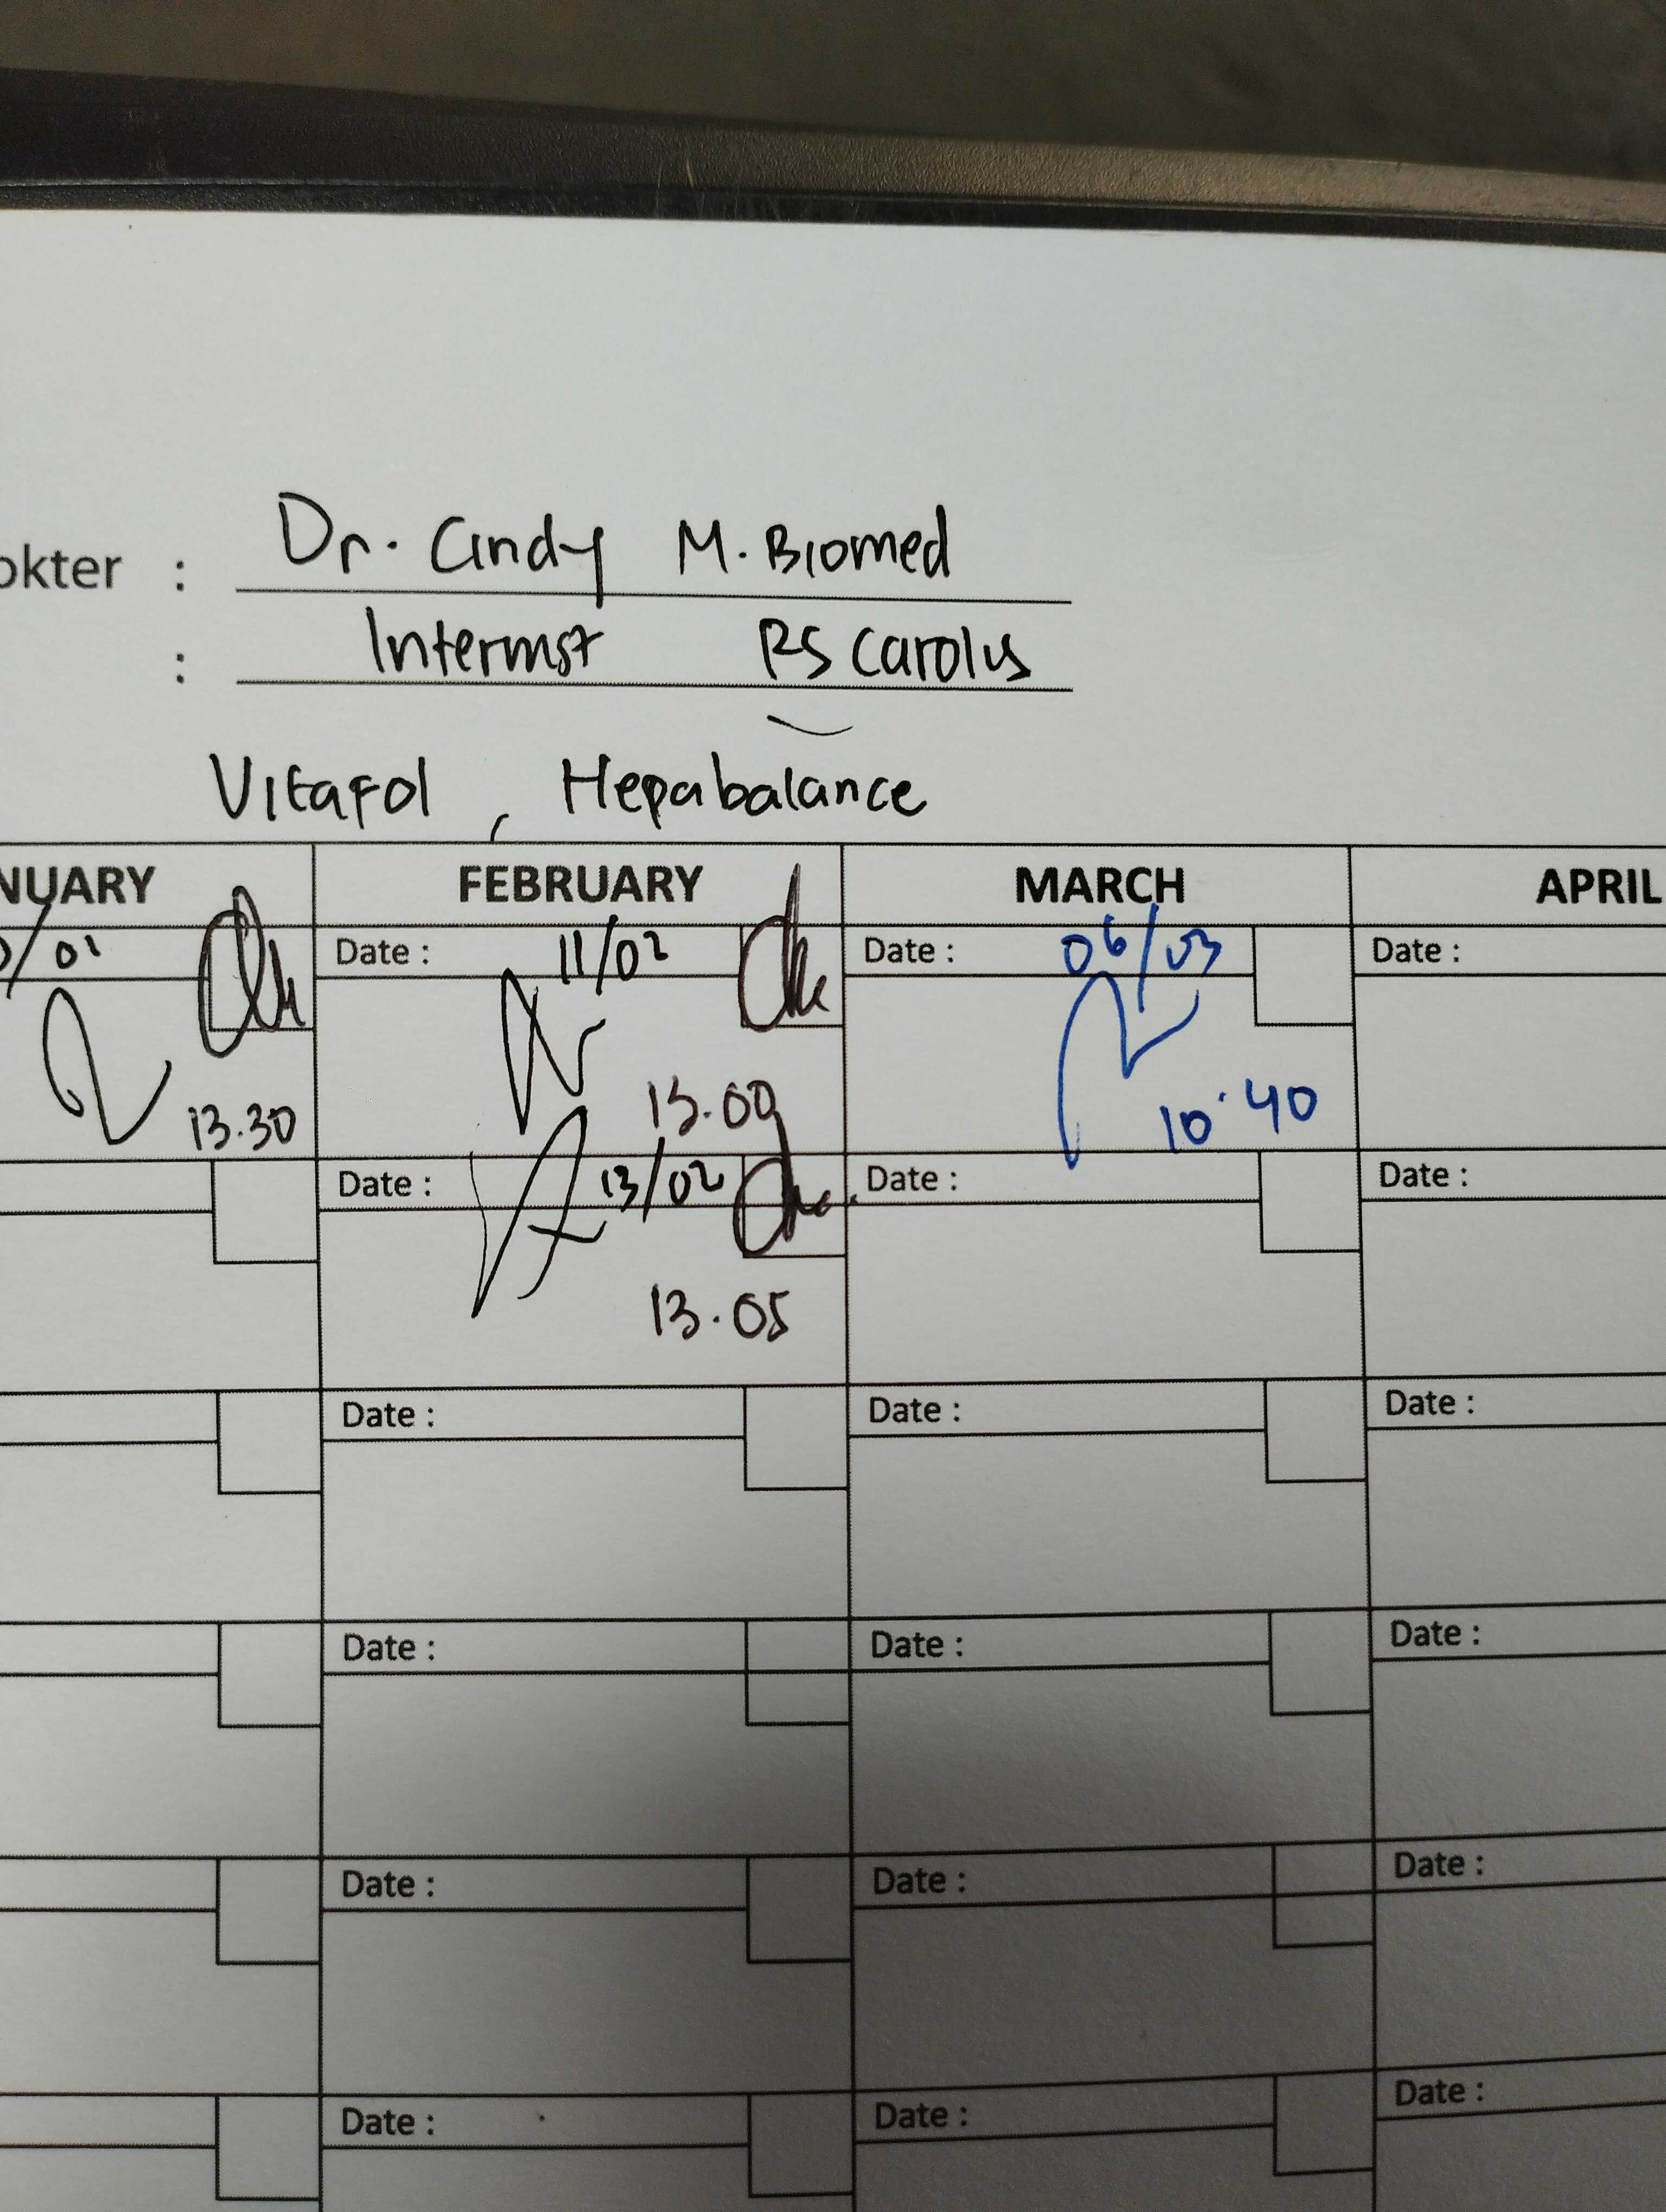 okter : Dr. Cindy M. Biomed
: Internist RS Carolus
Vitafol , Hepabalance
NUARY FEBRUARY MARCH APRIL
/01 Date : 11/02 Date : 06/03 Date :
13.30 10.40
Date : 13/02 Date : Date :
13.05
Date : Date : Date :
Date : Date : Date :
Date : Date : Date :
Date : Date : Date :